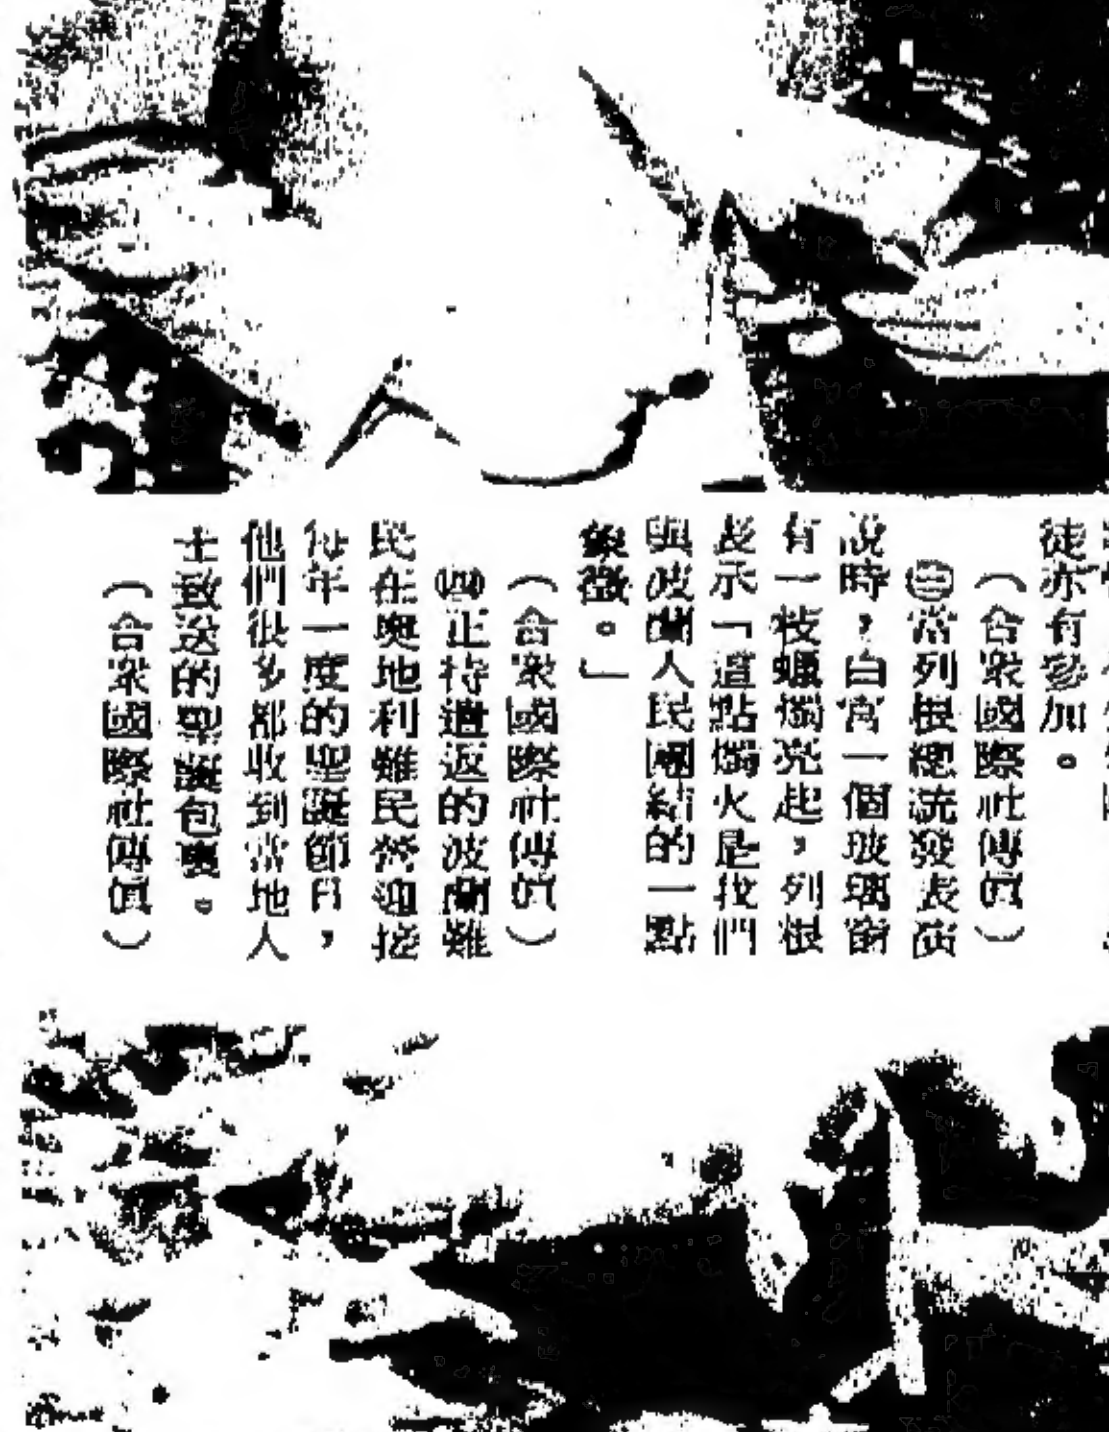 徒亦有參加。
（合衆國際社傳眞）
㊂當列根總統發表演
說時，白宮一個玻璃窗
有一枝蠟燭亮起，列根
表示「這點燭火是我們
與波蘭人民團結的一點
象徵。」
（合衆國際社傳眞）
㊃正待遣返的波蘭難
民在奧地利難民營迎接
每年一度的聖誕節日，
他們很多都收到當地人
士致送的聖誕包裹。
（合衆國際社傳眞）